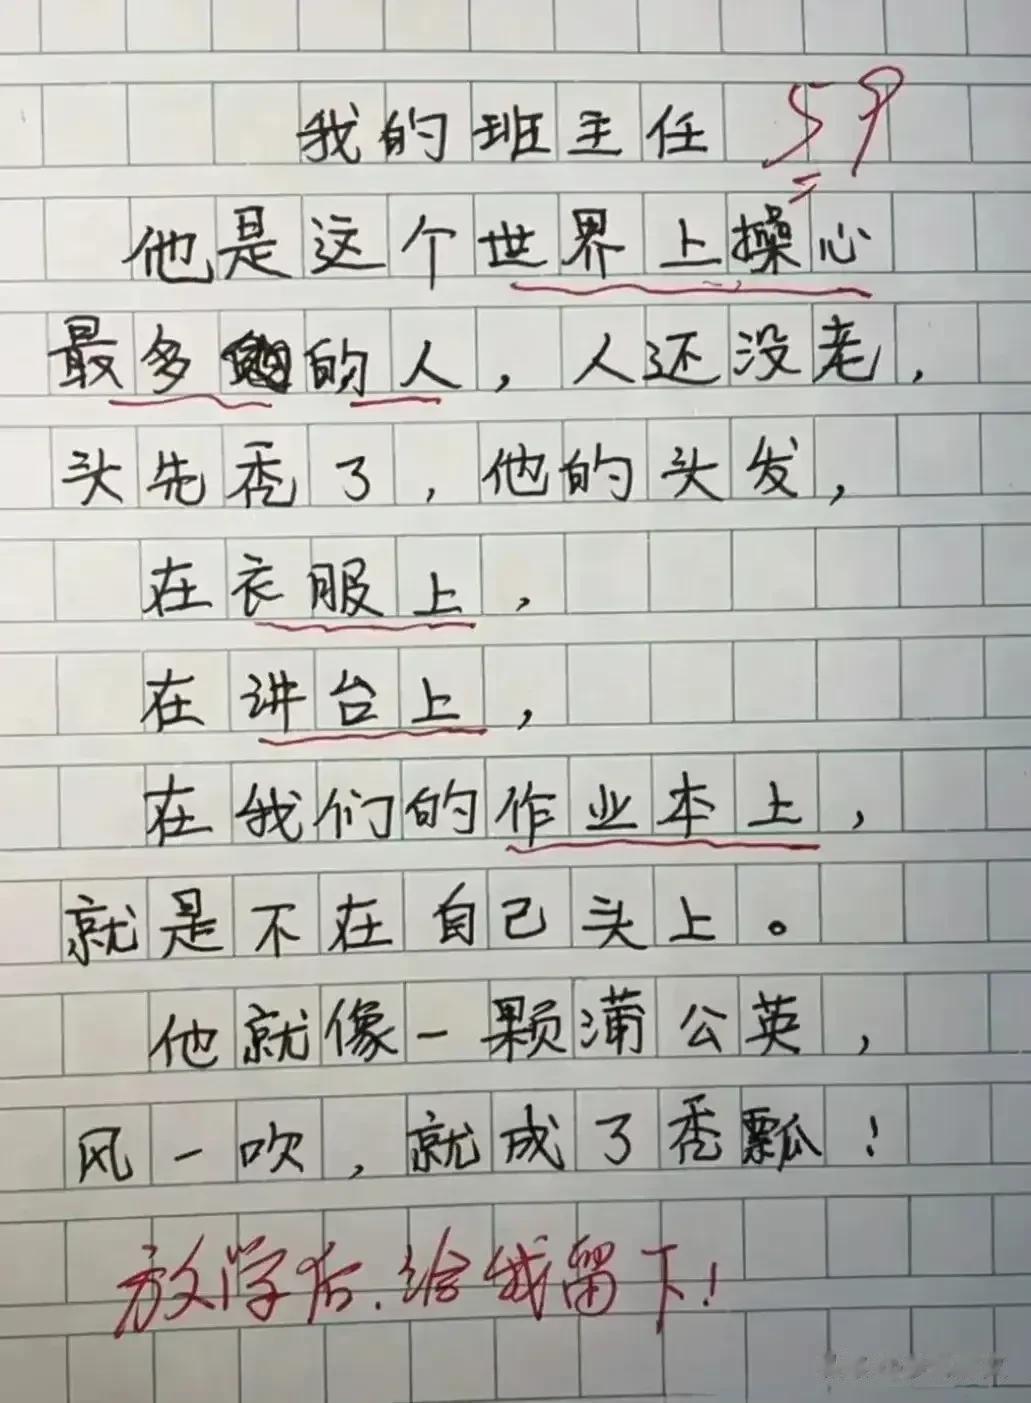 我的班主任 59
他是这个世界上操心
最多的人，人还没老，
头先秃了，他的头发，
在衣服上，
在讲台上，
在我们的作业本上，
就是不在自己头上。
他就像一颗蒲公英，
风一吹，就成了秃瓢！
放学后，给我留下！